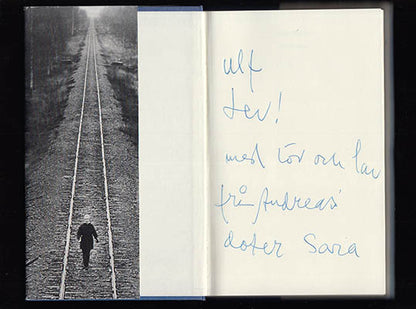 ulf
Lev!
med tör och lav
från Andreas'
doter Sara